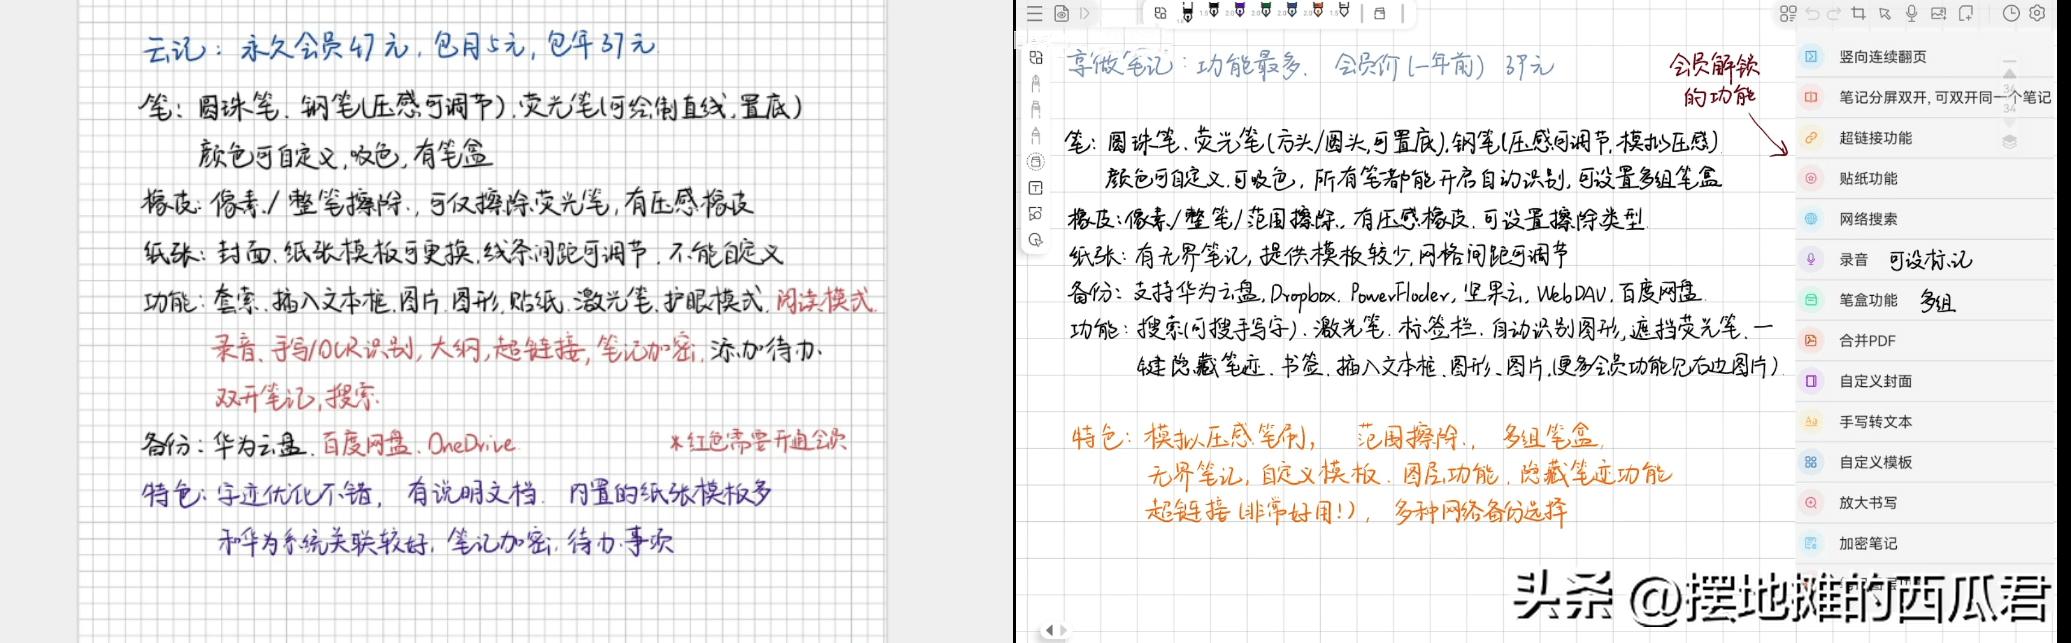 云记：永久会员47元，包月5元，包年37元
笔：圆珠笔、钢笔(压感可调节)、荧光笔(可绘制直线，置底)
颜色可自定义，吸色，有笔盒
橡皮：像素/整笔擦除，可仅擦除荧光笔，有压感橡皮
纸张：封面、纸张模板可更换，线条间距可调节，不能自定义
功能：套索、插入文本框、图片、图形，贴纸、激光笔、护眼模式，阅读模式
录音、手写/OCR识别，大纲，超链接，笔记加密，添加待办、
双开笔记，搜索
备份：华为云盘、百度网盘、OneDrive
*红色需要开通会员
特色：字迹优化不错，有说明文档，内置的纸张模板多
和华为系统关联较好，笔记加密，待办事项
享做笔记：功能最多，会员价(一年前) 37元
会员解锁
的功能
笔：圆珠笔、荧光笔(方头/圆头，可置底)，钢笔(压感可调节，模拟压感)
颜色可自定义，可吸色，所有笔都能开启自动识别，可设置多组笔盒
橡皮：像素/整笔/范围擦除，有压感橡皮，可设置擦除类型
纸张：有无界笔记，提供模板较少，网格间距可调节
备份：支持华为云盘，Dropbox，PowerFloder，坚果云，WebDAV，百度网盘
功能：搜索(可搜手写字)、激光笔、标签栏、自动识别图形，遮挡荧光笔，一
键隐藏笔迹、书签、插入文本框、图形、图片，(更多会员功能见右边图片)
特色：模拟压感笔刷，范围擦除，多组笔盒，
无界笔记，自定义模板，图层功能，隐藏笔迹功能
超链接(非常好用!)，多种网络备份选择
竖向连续翻页
笔记分屏双开，可双开同一个笔记
超链接功能
贴纸功能
网络搜索
录音 可设标记
笔盒功能 多组
合并PDF
自定义封面
手写转文本
自定义模板
放大书写
加密笔记
头条 @摆地摊的西瓜君